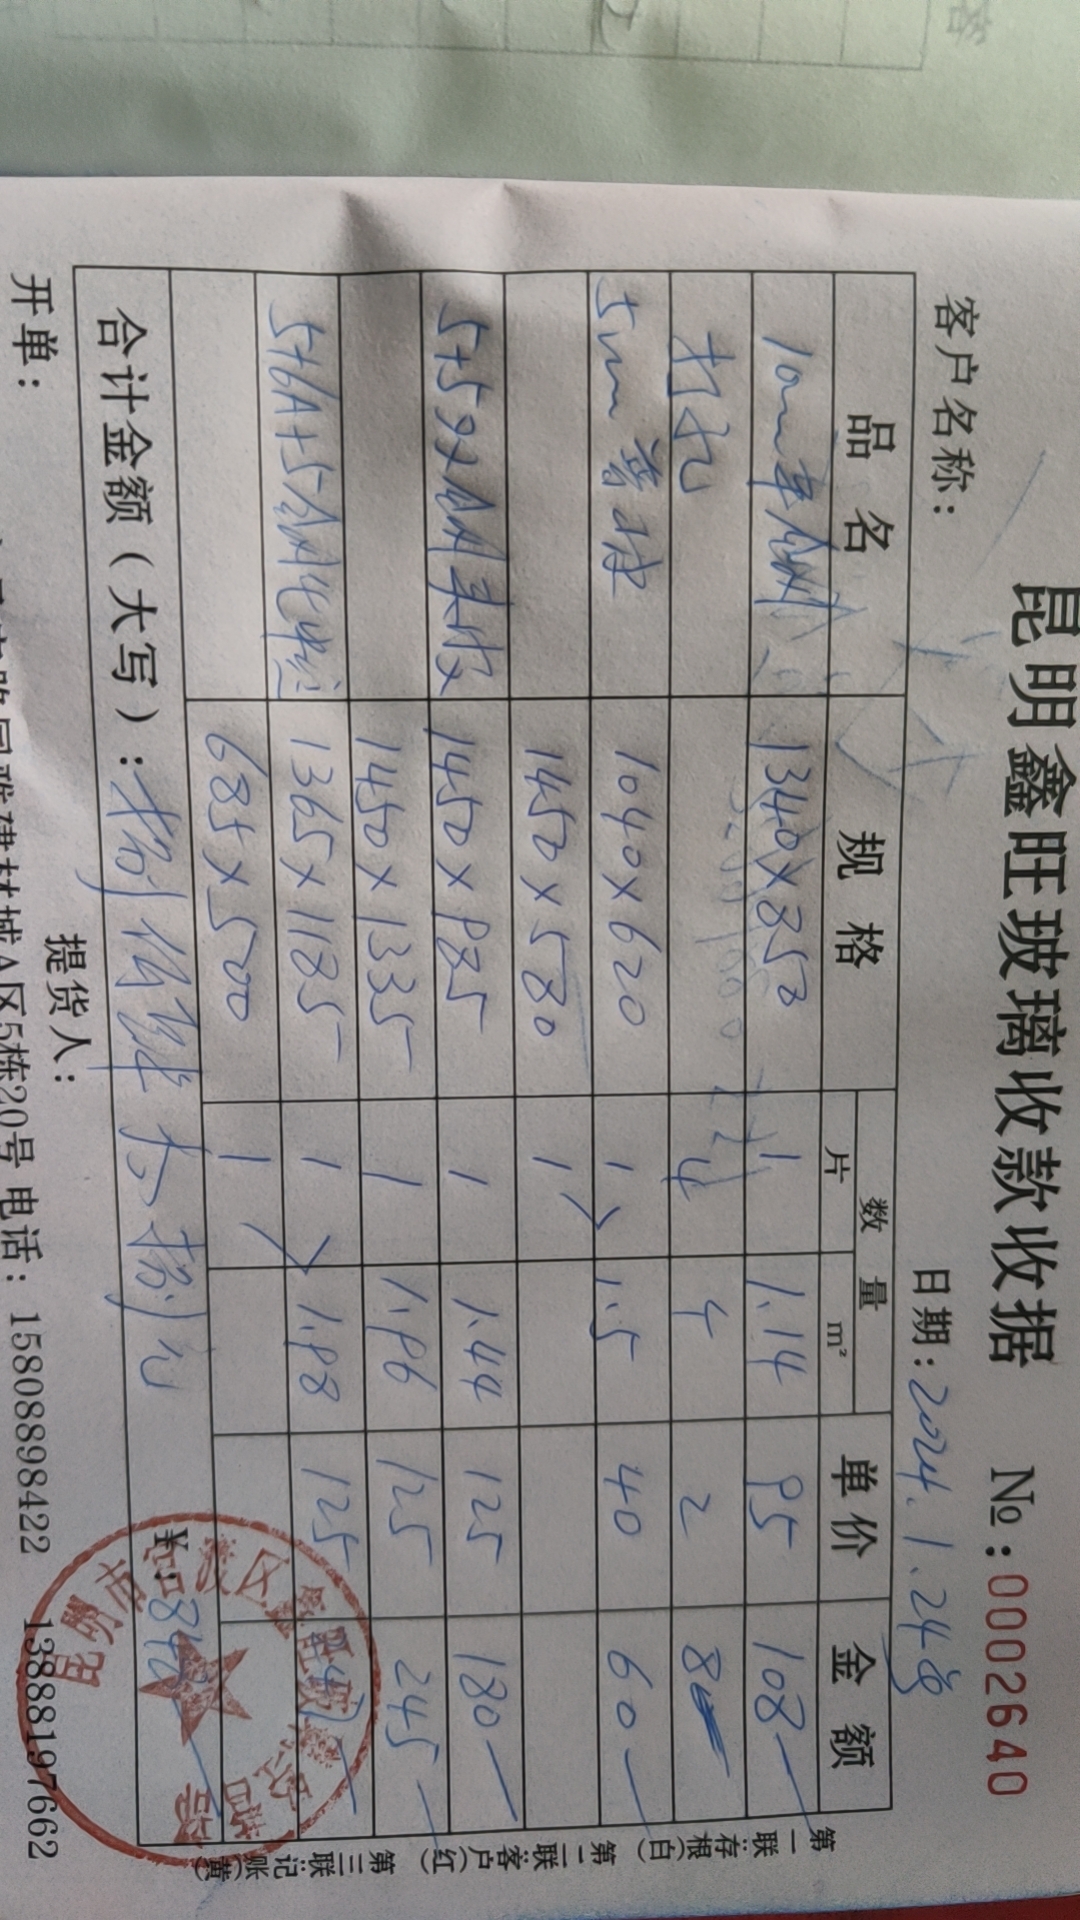 昆明鑫旺玻璃收款收据 №:0002640
客户名称: 日期:2024.1.24号
品名 规格 数量 单价 金额
片 m²
10mm单钢 1340×850 1 1.14 95 108
打孔 4 4 2 8
5mm 普玻 1040×620 1 1.5 40 60
1450×580 1
5+5夕×钢夹胶 1450×985 1 1.44 125 180
1450×1335 1 1.96 125 245
5+6A+5钢化中空 1365×1185 1 1.98 125
685×500 1
合计金额(大写): 捌佰肆 捌元 ¥:848
开单: 提货人:
建材城A区5栋20号 电话: 15808898422 13888197662
第一联:存根(白) 第二联:客户(红) 第三联:记账(黄)
昆明市官渡区鑫旺玻璃经营部